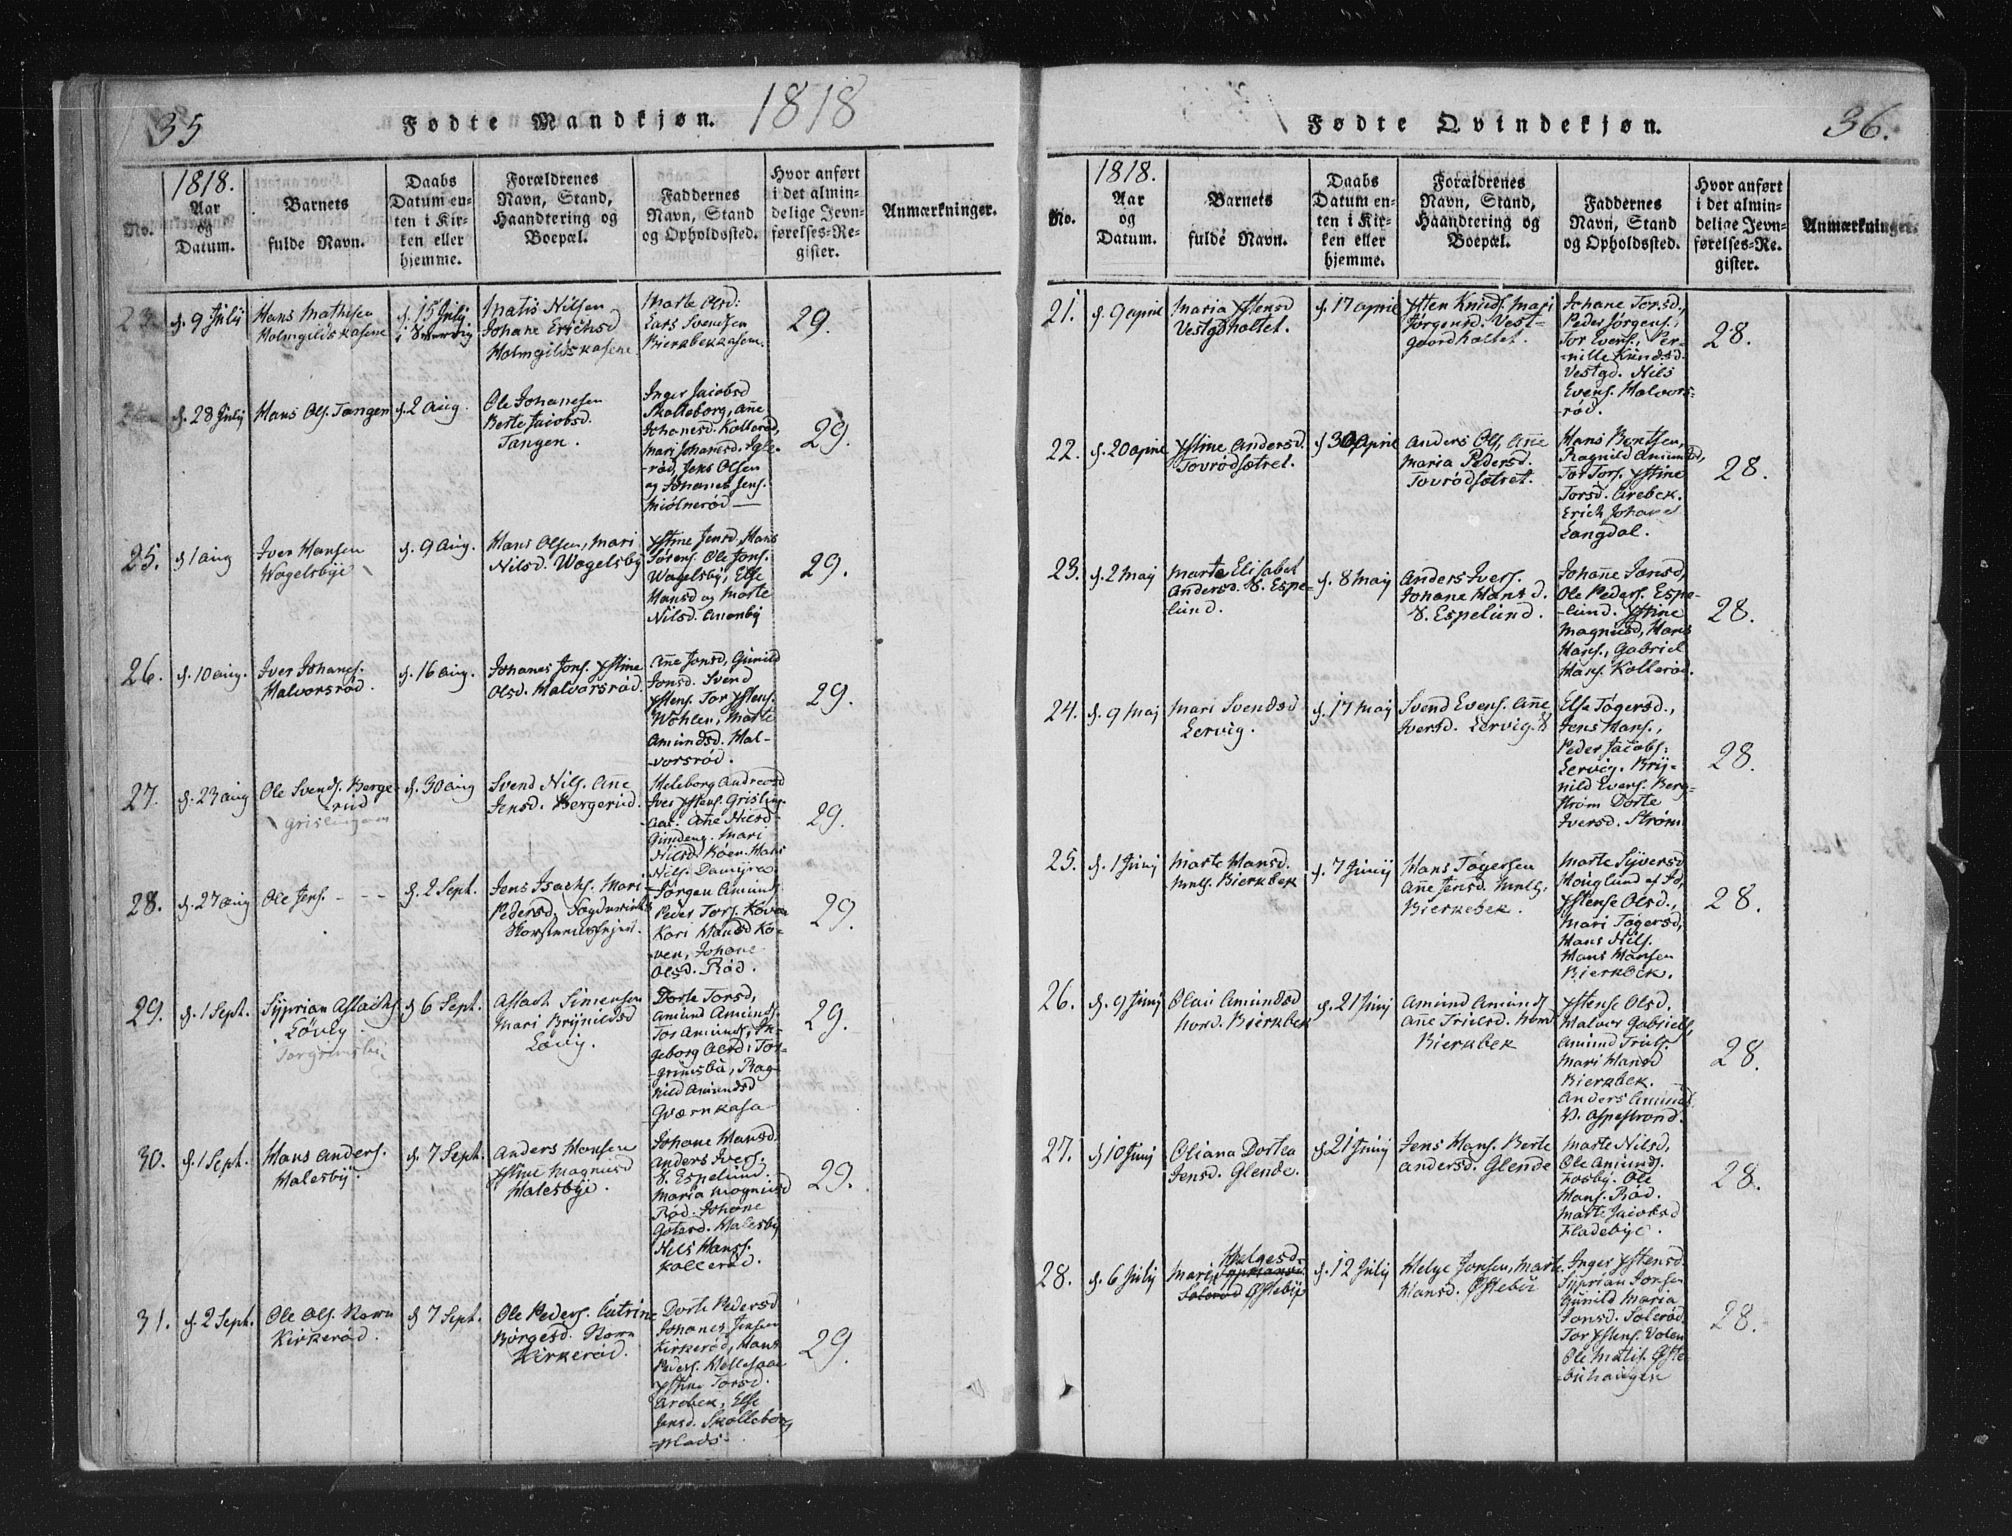 35
Fødte Mandkjøn. 1818
No.
1818.
Aar
og
Datum.
Barnets
fulde Navn.
Daabs
Datum en-
ten i Kir-
ken eller
hjemme.
Forældrenes
Navn, Stand,
Haandtering og
Boepæl.
Faddernes
Navn, Stand
og Opholdssted.
Hvor anført
i det almin-
delige Jevn-
førelses-Re-
gister.
Anmærkninger.
23.
d. 9 July
Hans Mathisen
Holmgilskasene
d. 15 July
i
Matis Nilsen
Johane Erichsd
Holmgilskasene
Marte Olsd:
Lars Svendsen
Bierkbekkasene
29.
d. 28 July
Hans Ols. Tangen
d. 2 Aug.
Ole Johanesen
Berte Jacobsd.
Tangen.
Inger Jacobsd
Skolleborg, Ane
Johanesd. Kollerød,
Mari Johanesd. Igle-
-rød, Jens Olsen
og Johanes Jens.
Miølnerød
29.
25.
d 1 aug
Iver Hansen
Wogelsbye
d. 9 Aug.
Hans Olsen, Mari
Nilsd. Wogelsby
Ystine Jensd, Hans
Sørens. Ole Jons.
Wogelsby, Else
Hansd og Marte
Nilsd.
29.
26.
d. 10 aug.
Iver Johanes.
Halvorsrød.
d. 16 aug.
Johanes Jons. Ystine
Olsd. Halvorsrød.
Ane Jonsd, Gunild
Jonsd. Svend
Ystens. Tor Ystens.
Wohlen, Marte
Amundsd. Hal-
-vorsrød.
29.
27.
d. 23 aug
Ole Svends. Berge-
-rud
d. 30 aug
Svend Nils. Ane
Jensd. Bergerud.
Heleborg Andreasd
Iver Ystens. Grisling-
Ane Nilsd
Mari
Nilsd. Hans
Nils. Damyra
29.
28.
d. 27 aug
Ole Jens. - - -
d. 2 Sept.
Jens Isachs. Mari
Pedersd.
Jørgen Amunds.
Peder Tors. Koven
Kari Hansd Ko-
-ven, Johane
Olsd. Rød.
29.
29.
d. 1 Sept.
Syprian Aslachs
Løvly
Torgrimsby
d 6 Sept.
Aslach Simensen
Mari Brynildsd
Løvly.
Dorte Torsd,
Amund Amunds.
Tor Amunds. In-
geborg Olsd: Tor-
-grimsby, Rag-
nild Amundsd
Qværnkasa
29.
30.
d. 1 Sept.
Hans Anders.
Halesby.
d 7 Sept.
Anders Hansen
Ystine Magnusd
Halesbye.
Johane Hansd.
Anders Ivers.
V. Espelund.
Maria Magnusd
Rød. Johane
Halesby
Nils Hans.
Kollerød.
29.
31.
d. 2 Sept.
Ole Ols. Norn
Kirkerød.
d 7 Sept.
Ole Peders. Catrine
Børgesd. Norn
Kirkerød.
Dorte Pedersd
Johanes Jensen
Kirkerød, Hans
Peders.
Ystine Torsd.
Arebek, Else
Jensd. Skolleborg
-plads.
29.
Fødte Qvindekjøn.
36.
No.
1818.
Aar
og
Datum.
Barnets
fulde Navn.
Daabs
Datum en-
ten i Kir-
ken eller
hjemme.
Forældrenes
Navn, Stand,
Haandtering og
Boepæl.
Faddernes
Navn, Stand
og Opholdssted.
Hvor anført
i det almin-
delige Jevn-
førelses-Re-
gister.
Anmærkninger.
21.
d. 9 april
Maria Ystensd
Vestgdholtet.
d. 17 april
Ysten Knuds. Mari
Jørgensd. Vest-
gaardholtet.
Johane Torsd,
Peder Jørgens.,
Tor Evens., Per-
-nille Knudsd.
Vestgd. Nils
Evens. Halvors-
-rød.
28.
22.
d. 20 april
Ystine Andersd.
Tovrødsetret.
d 30 april
Anders Ols, Ane
Maria Pedersd.
Tovrødsetret.
Hans Bentsen,
Ragnild Amundsd,
Tor Tors. Ystine
Torsd. Arebek.
Erich Johanes
Langdal.
28.
23.
d. 2 maj
Marte Elisabet
Andersd. V. Espe-
-lund.
d. 8 maj
Anders Ivers.
Johane Hansd.
V. Espelund.
Johane Jonsd,
Ole Peders. Espe-
-lund. Ystine
Magnusd, Hans
Hans., Gabriel
Hans. Kollerød.
28.
24.
d. 9 maj
Mari Svendsd
Lervig.
d. 17 maj
Svend Evens. Ane
Iversd. Lervig.
Else Tøgersd.,
Jens Hans.,
Peder Jacobs:
Lervig. Bry-
nild Evens. Berg-
strøm Dorte
Iversd. Strøm
28.
25.
d. 1 Junij
Marte Hansd.
mnls. Bierkbek
d. 7 Junij
Hans Tøgersen
Ane Jensd. mnls.
Bierkebek.
Marte Syversd
Hoüglund af Id,
Ystense Olsd.,
Mari Tøgersd,
Hans Nils.
Hans Hansen
Bierkbek.
28.
26.
d. 9 Junij
Olau Amundsd
nord. Bierkbek
d. 21 Junij
Amund Amunds
Ane Trulsd. nord
Bierkbek
Ystense Olsd.
Halvor Gabriels,
Amund Truls.
Mari Hansd
Bierkbek.
Anders Amunds
V. Aspestrand.
28.
27.
d 10 Junij
Oliana Dortea
Jensd. Glende.
d 21 Junij
Jens Hans. Berte
Andersd. Glende
Marte Nilsd,
Ole Amunds.
Fosby. Ole
Hans. Rød.
Marte Jacobsd
Fladebye.
28.
28.
d. 6 July
Mari Helgesd.
Solerød Østebye
d. 12 July
Helge Jonsen, Marte
Hansd. Østebü
Inger Ystensd.
Syprian Jonsen
Gunild Maria
Jonsd. Solerød.
Tor Ystens. Volen
Ole Matis. Øste-
-bühaugen
28.